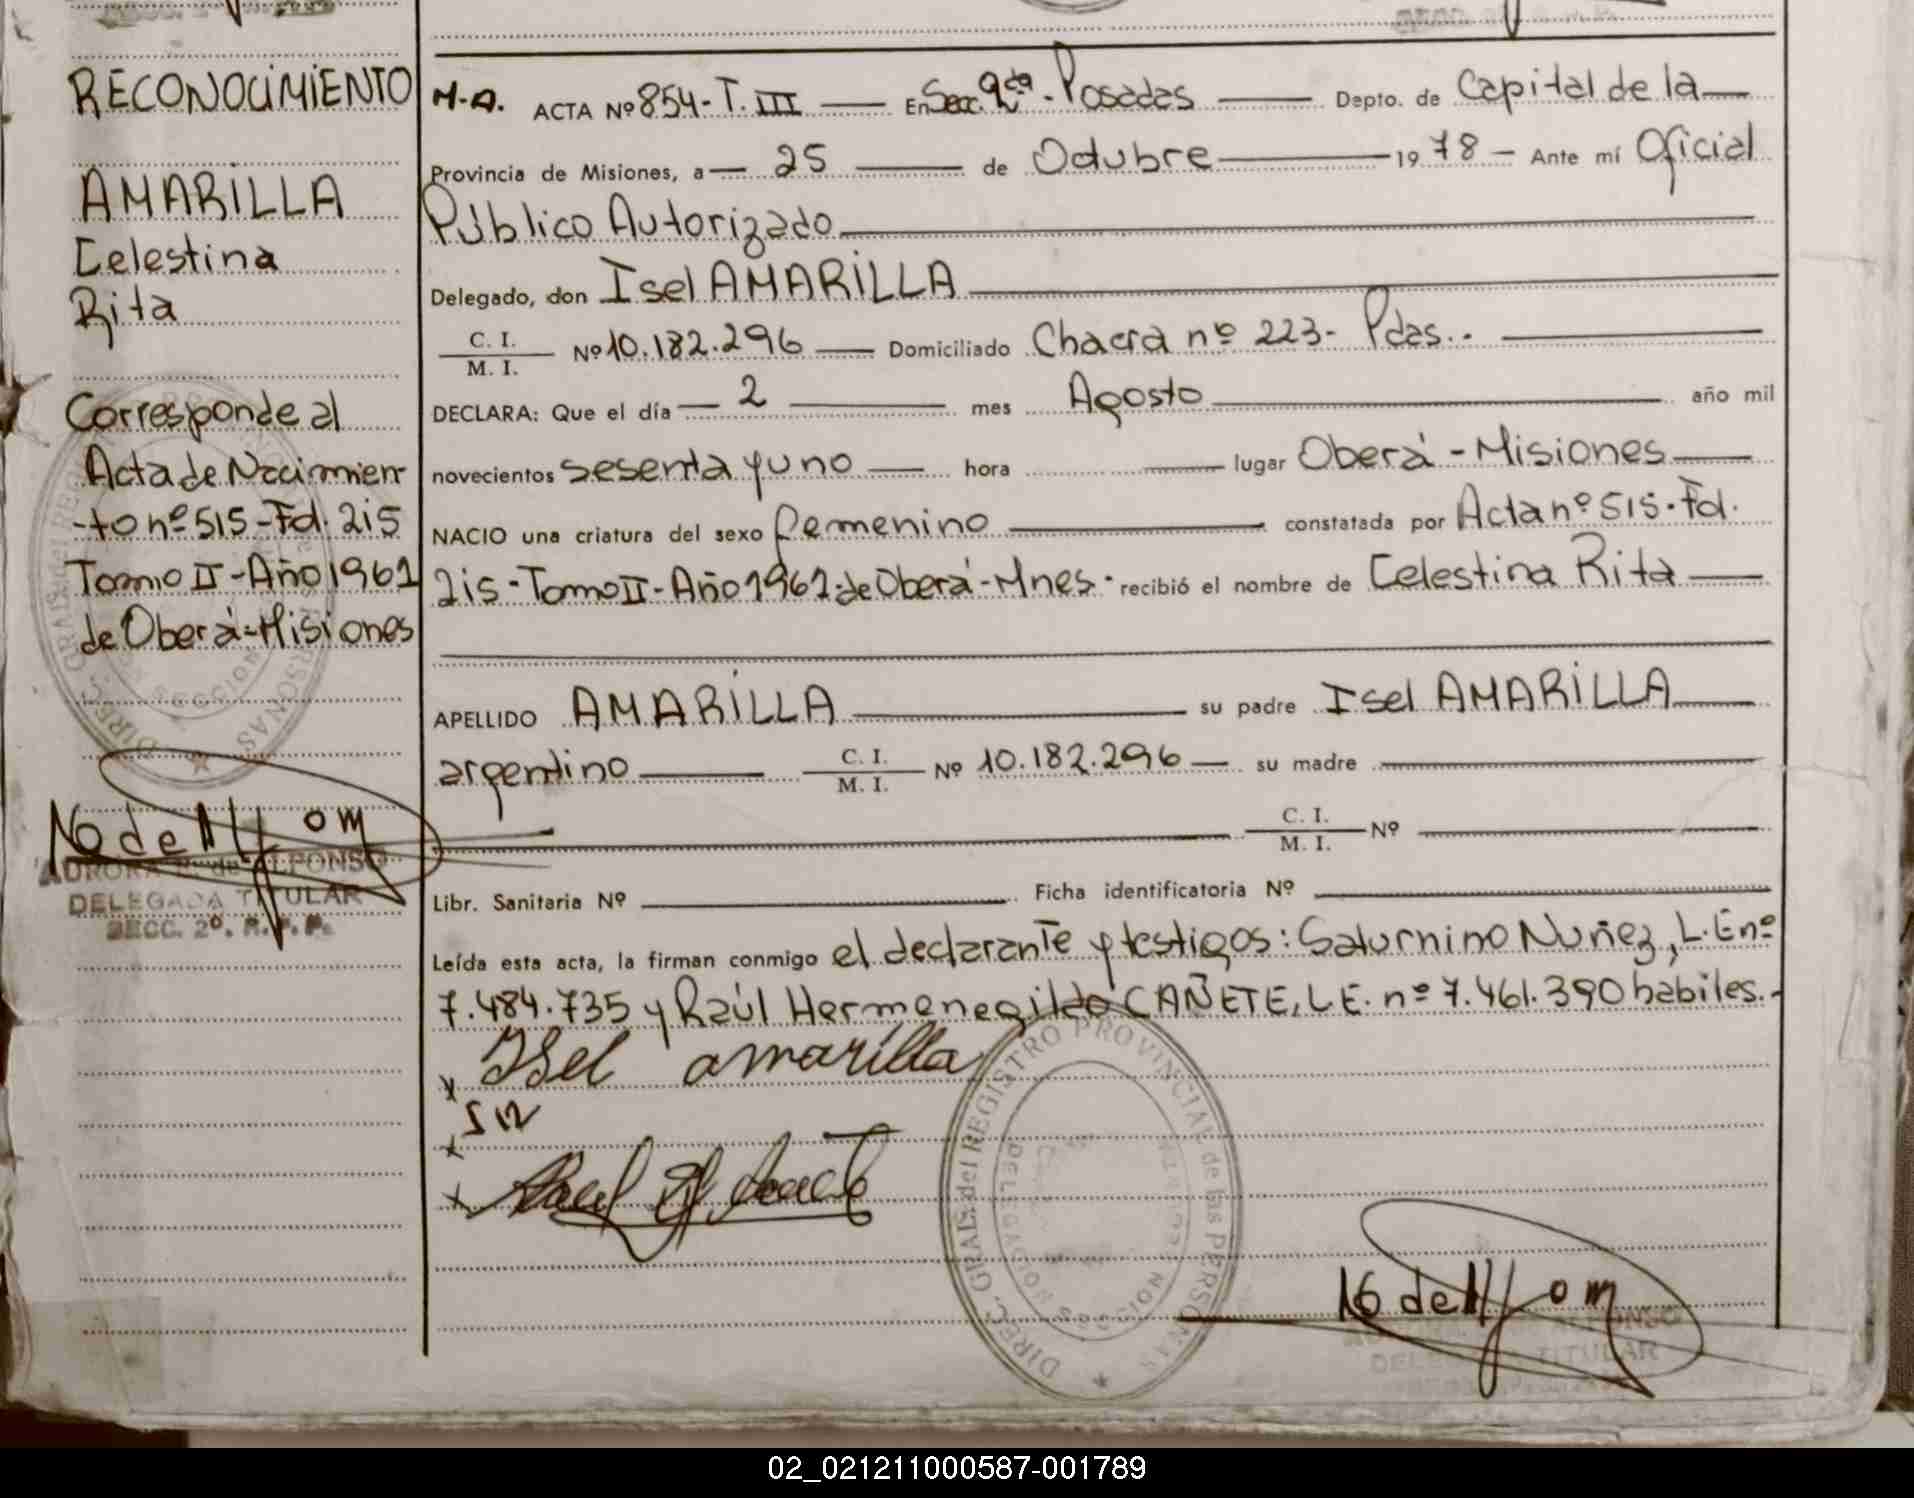 RECONOCIMIENTO
AMARILLA
Celestina
Rita
Corresponde al
Acta de Nacimien-
-to nº 515-Fol. 215
Tomo II-Año 1961
de Oberá-Misiones
AURORA de ALFONSO
DELEGADA TITULAR
SECC. 2º. R.P.P.
M-A. ACTA Nº 854-T. III En Secc. 2da. Posadas Depto. de Capital de la
Provincia de Misiones, a 25 de Octubre 1978 Ante mí Oficial
Público Autorizado
Delegado, don Isel AMARILLA
C. I. / M. I. Nº 10.182.296 Domiciliado Chacra nº 223- Pdas..
DECLARA: Que el día 2 mes Agosto año mil
novecientos sesenta y uno hora lugar Oberá-Misiones
NACIO una criatura del sexo femenino constatada por Acta nº 515-Fol.
215-Tomo II-Año 1961-de Oberá-Mnes- recibió el nombre de Celestina Rita
APELLIDO AMARILLA su padre Isel AMARILLA
argentino C. I. / M. I. Nº 10.182.296 su madre
C. I. / M. I. Nº
Libr. Sanitaria Nº Ficha identificatoria Nº
Leída esta acta, la firman conmigo el declarante y testigos: Saturnino Nuñez, L.E nº
7.484.735 y Raúl Hermenegildo CAÑETE, L E. nº 7.461.390 habiles.-
x Isel amarilla
x S N
x
DIREC. GRAL. del REGISTRO PROVINCIAL de las PERSONAS
ALFONSO
DELEGADA TITULAR
02_021211000587-001789